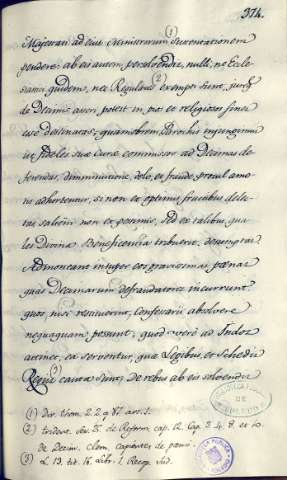 374.
Majestati ad ejus Ministrorum (1) sustentationem
pendere: ab eis autem persolvendis, nulli, ne Eccle-
siastici quidem, nec Regulares (2) exempti sient,
de Decimis autem potest in pios et religiosos fines
esse destinatas: quamobrem Parochis injungimus
ut fideles suae curae commissos ad Decimas de-
ferendas, diminutione, dolo, et fraude, procul amo-
tis adhortentur, si non ex optimis fructibus delec-
tas saltim non ex pessimis, sed ex talibus, qua-
les Divina Beneficentia tribuerit, desumptas.
Admoneant insuper eos gravissimas poenas
quas Decimarum defraudatores incurrunt
quos, nisi restituerint, Confessarii absolvere
nequaquam possunt; quod vero ad Indos
attinet, ea serventur quae Legibus et Schedis
Regiis (3) cauta sunt; de rebus ab eis solvendis
(1) Div. Thom. 2. 2. q. 87. art. 1.
(2) Trident. Ses. 25. de Reform. cap. 12. Cap. 2. 4. 8. et 10.
de Decim. Clem. cupientes de poenis.
(3) L. 13. tit. 16. Lib. 1. Recop. Ind.
BIBLIOTECA